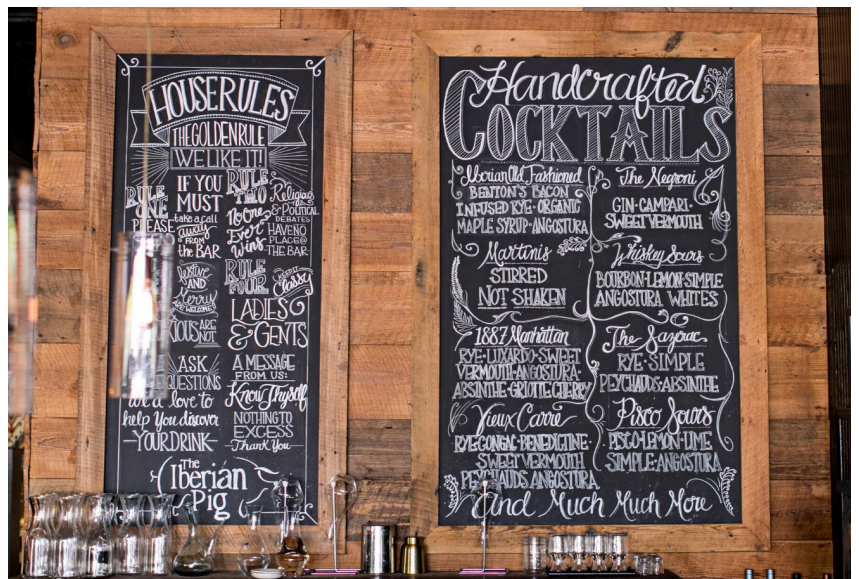 HOUSERULES
THE GOLDEN RULE
WE LIKE IT!
RULE
ONE
PLEASE
IF YOU
MUST
take a call
away
FROM
the BAR
RULE
TWO
No One
Ever
Wins
Religious
& POLITICAL
DEBATES
HAVE NO
PLACE @
THE BAR
festive
AND
Merry
WELCOME
ARE
NOT
RULE
FOUR
KEEP IT
Classy
LADIES
& GENTS
ASK
QUESTIONS
We'd love to
help You discover
YOUR DRINK
A MESSAGE
FROM US:
Know Thyself
NOTHING TO
EXCESS
Thank You
The
Iberian
Pig
Handcrafted
COCKTAILS
Iberian Old Fashioned
BENTON'S BACON
INFUSED RYE · ORGANIC
MAPLE SYRUP · ANGOSTURA
Martinis
STIRRED
NOT SHAKEN
1887 Manhattan
RYE · LUXARDO · SWEET
VERMOUTH · ANGOSTURA ·
ABSINTHE · GRIOTTE CHERRY
Vieux Carré
RYE · CONGAC · BENEDICTINE ·
SWEET VERMOUTH
PEYCHAUDS ANGOSTURA
The Negroni
GIN · CAMPARI ·
SWEET VERMOUTH
Whiskey Sours
BOURBON · LEMON · SIMPLE
ANGOSTURA WHITES
The Sazerac
RYE · SIMPLE
PEYCHAUDS · ABSINTHE
Pisco Sours
PISCO · LEMON · LIME
SIMPLE · ANGOSTURA
And Much Much More